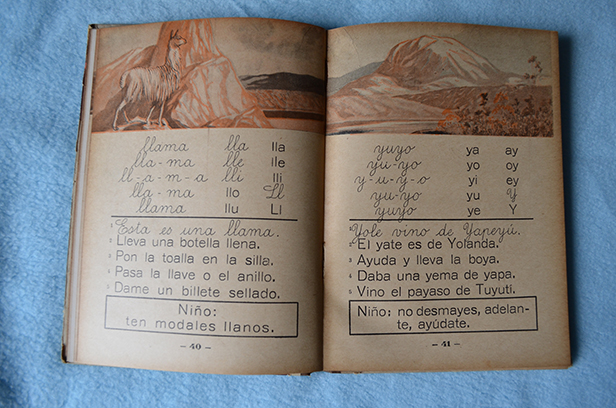 llama lla lla
lla-ma lle lle
ll-a-m-a lli lli
lla-ma llo Ll
llama llu Ll
1 Esta es una llama.
2 Lleva una botella llena.
3 Pon la toalla en la silla.
4 Pasa la llave o el anillo.
5 Dame un billete sellado.
Niño:
ten modales llanos.
— 40 —
yuyo ya ay
yu-yo yo oy
y-u-y-o yi ey
yu-yo yu Y
yuyo ye Y
1 Yole vino de Yapeyú.
2 El yate es de Yolanda.
3 Ayuda y lleva la boya.
4 Daba una yema de yapa.
5 Vino el payaso de Tuyutí.
Niño: no desmayes, adelan-
te, ayúdate.
— 41 —